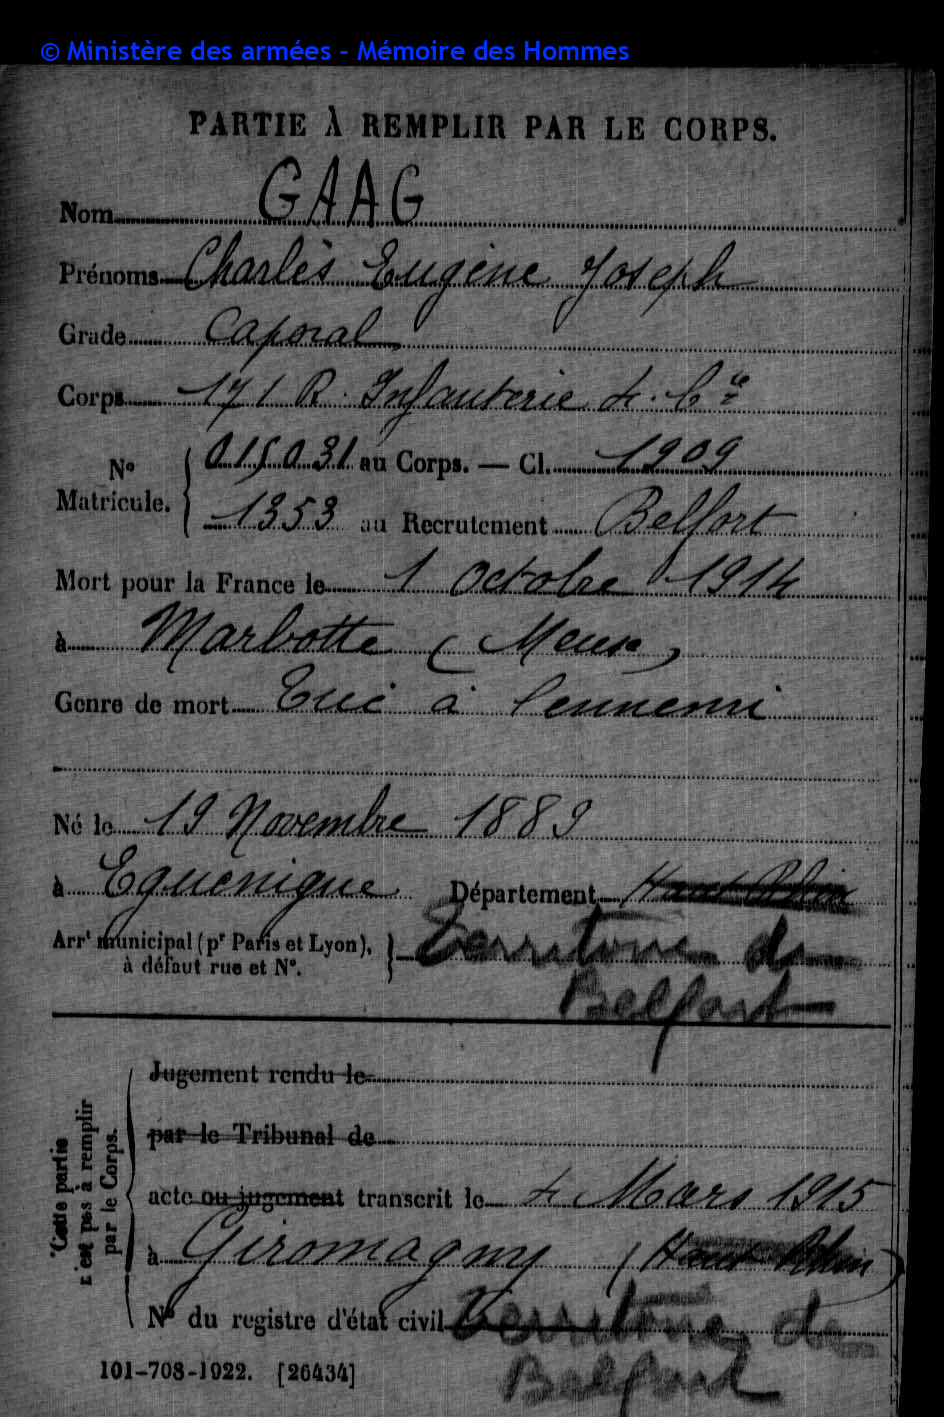 © Ministère des armées - Mémoire des Hommes
PARTIE À REMPLIR PAR LE CORPS.
Nom GAAG
Prénoms Charles Eugène Joseph
Grade Caporal
Corps 171 R. Infanterie 4. Cie
No Matricule. 015031 au Corps. — Cl. 1909
1353 au Recrutement Belfort
Mort pour la France le 1 Octobre 1914
à Marbotte (Meuse)
Genre de mort Tué à l'ennemi
Né le 19 Novembre 1889
à Eguenigue Département Haut Rhin
Arrt municipal (pr Paris et Lyon), à défaut rue et No. Territoire de
Belfort
Cette partie n'est pas à remplir par le Corps.
Jugement rendu le
par le Tribunal de
acte ou jugement transcrit le 4 Mars 1915
à Giromagny (Haut Rhin)
No du registre d'état civil Territoire de
Belfort
101-708-1922. [26434]